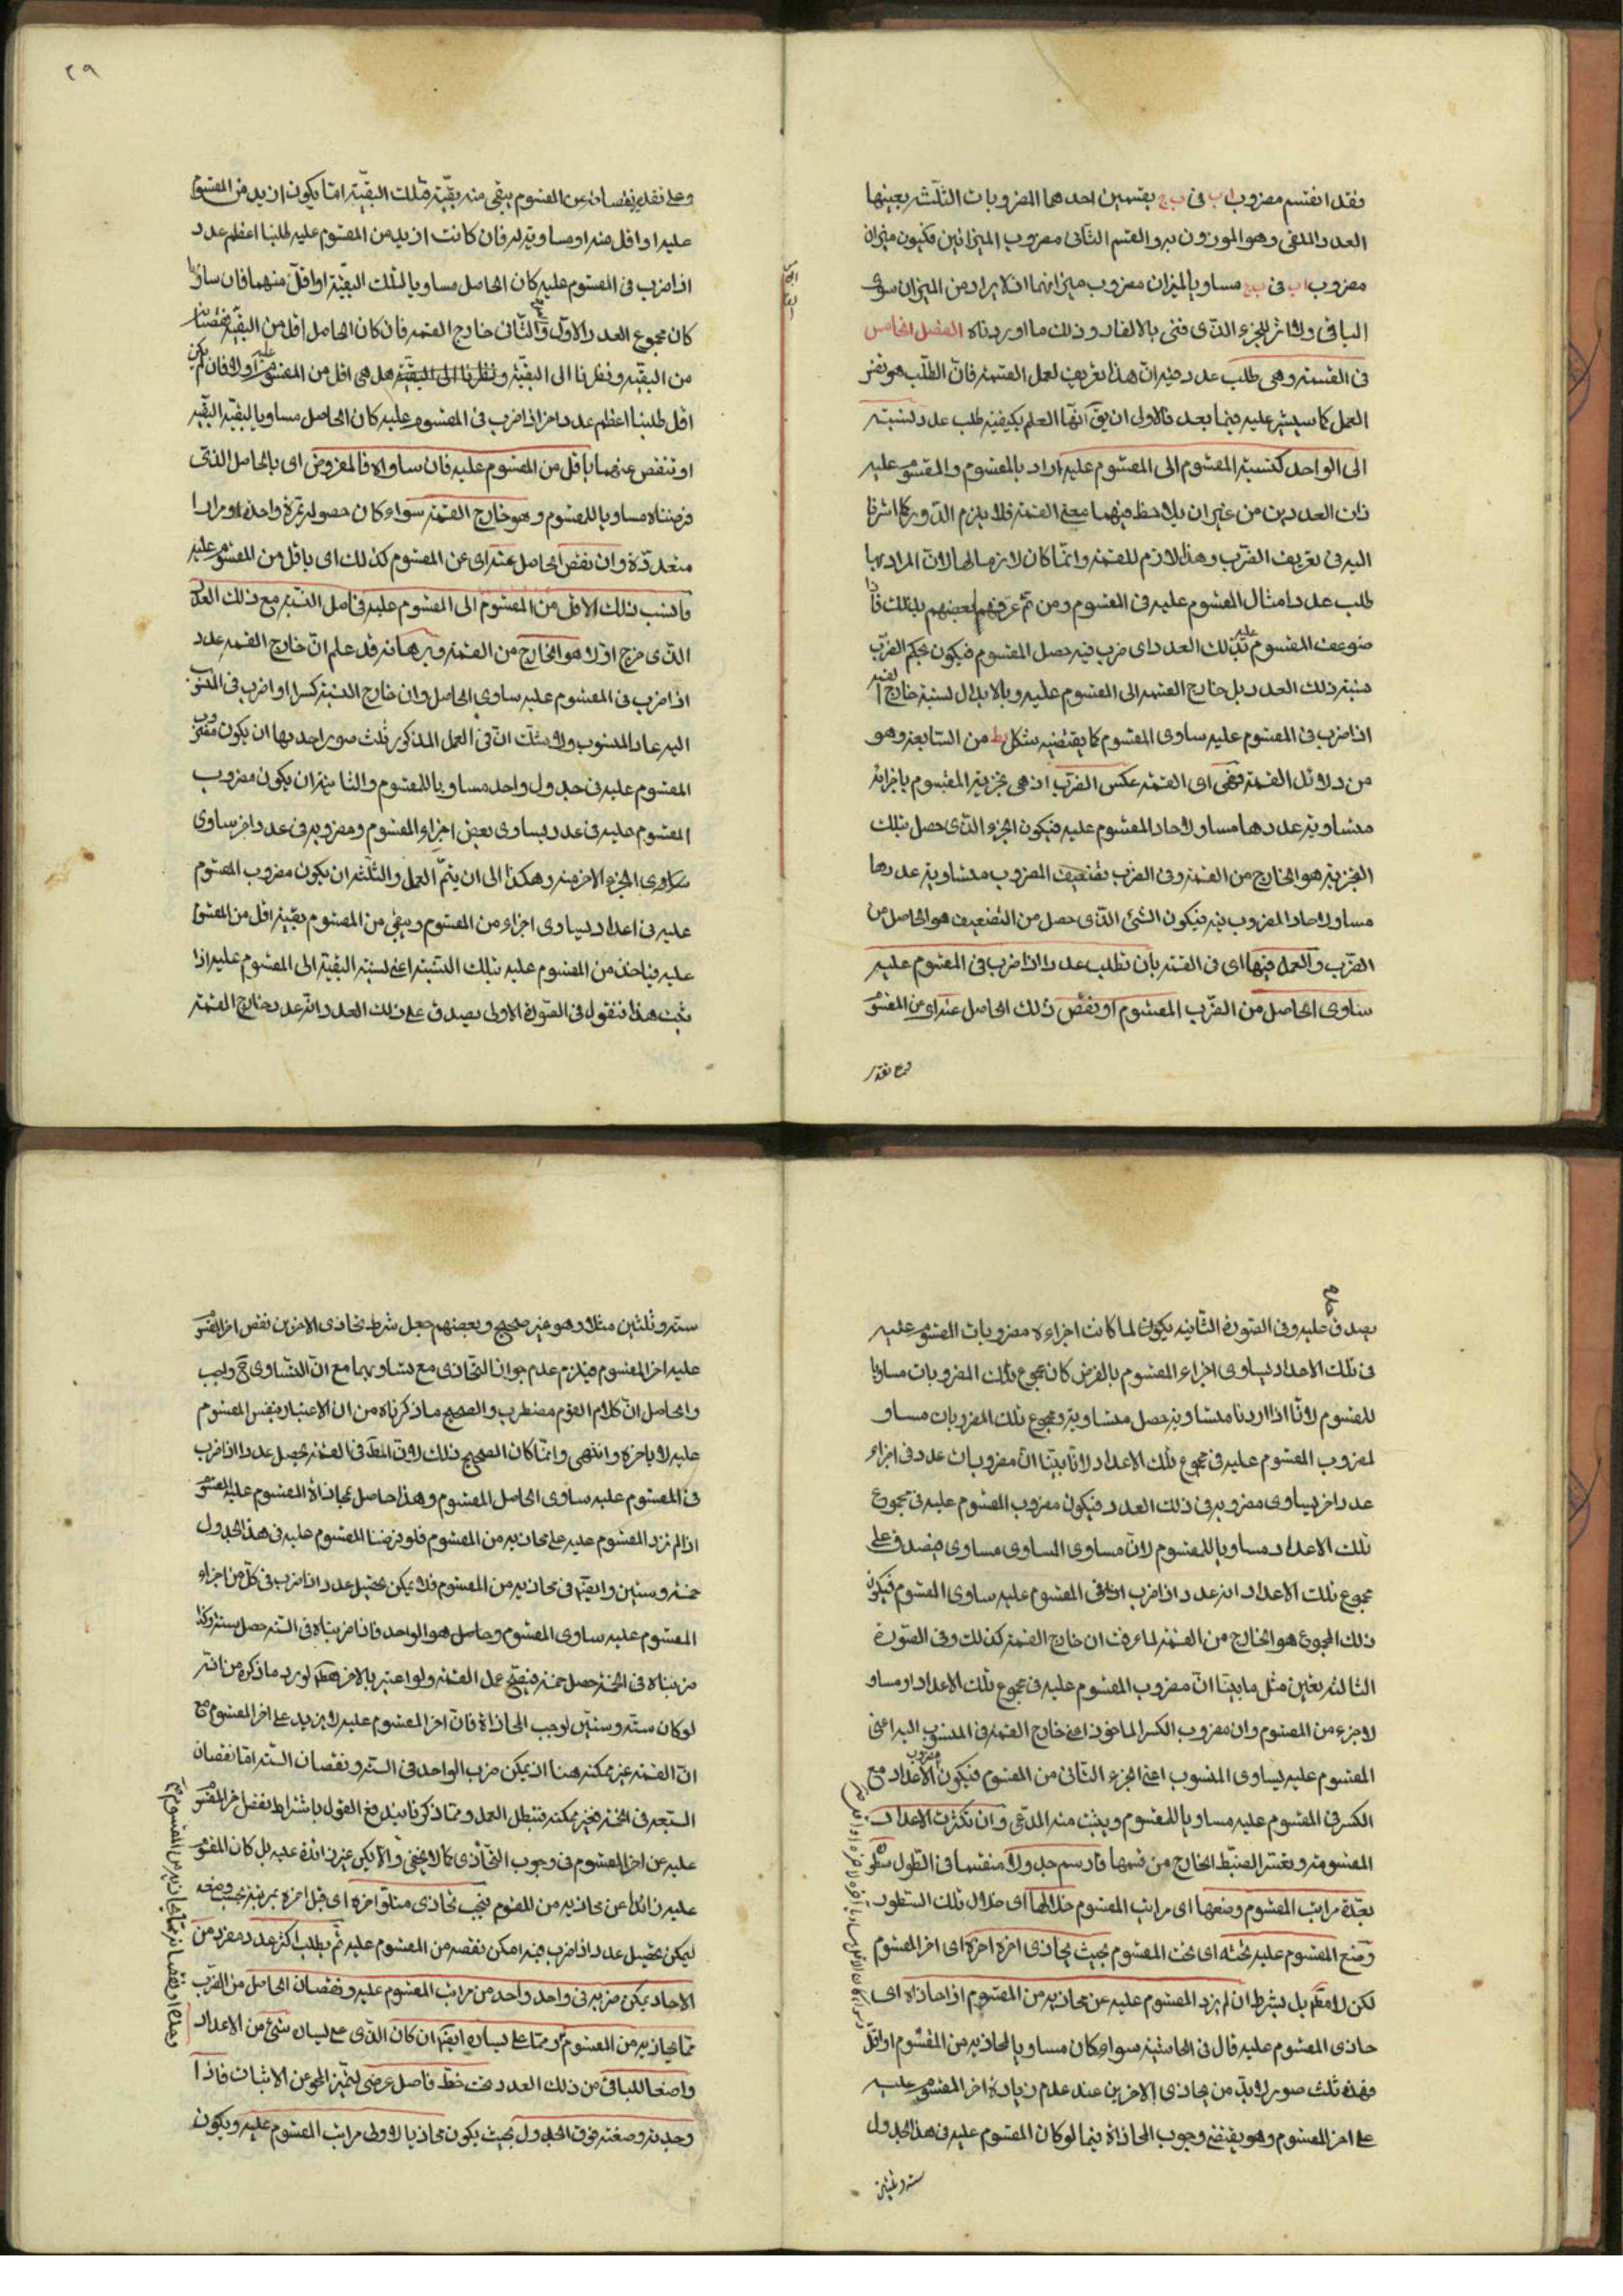 فقد انقسم مضروب اب فى ب ج بقسمين احدهما المضروبات الثلث بعينها
العدد الملقى وهو الموزون به والقسم الثانى مضروب الميزانين فيكون ميزان
مضروب اب فى ب ج مساويا لميزان مضروب ميزانهما اذ لا يراد من الميزان سوى
الباقى ولا اثر للجزء الذى فنى بالالقاء وذلك ما اوردناه الفصل الخامس
فى القسمة وهى طلب عدد فيه ان هذا تعريف لعمل القسمة فان الطلب هو نفس
العمل كما سيشير عليه فيما بعد فالاولى ان يق انها العلم بكيفية طلب عدد نسبته
الى الواحد كنسبة المقسوم الى المقسوم عليه اراد بالمقسوم والمقسوم عليه
ذات العددين من غير ان يلاحظ فيهما معنى القسمة فلا يلزم الدور كما اشرنا
اليه فى تعريف الضرب وهذا لازم للقسمة وانما كان لازما لها لان المراد بها
طلب عدد امثال المقسوم عليه فى المقسوم ومن ثم عرفهم بعضهم بذلك فاذا
ضوعف المقسوم عليه بذلك العدد اى ضرب فيه حصل المقسوم فيكون بحكم الضرب
نسبة ذلك العدد بل خارج القسمة الى المقسوم عليه وبالابدال نسبة خارج القسمة
اذا ضرب فى المقسوم عليه ساوى المقسوم كما يقتضيه شكل يط من السابعة وهو
من دلائل القسمة فهى اى القسمة عكس الضرب اذ هى تجزية المقسوم باجزاء
متساوية عددها مساو لاحاد المقسوم عليه فيكون الجزء الذى حصل بتلك
التجزية هو الخارج من القسمة وفى الضرب تضعيف المضروب متساوية عددها
مساو لاحاد المضروب فيه فيكون الشئ الذى حصل من التضعيف هو الحاصل من
الضرب والعمل فيها اى فى القسمة بان تطلب عددا اذا ضرب فى المقسوم عليه
ساوى الحاصل من الضرب المقسوم او نقص ذلك الحاصل عنه اى عن المقسوم
وعلى تقدير
٢٩
وعلى تقدير نقصانه عن المقسوم يبقى منه بقية فتلك البقية اما يكون ازيد من المقسوم
عليه او اقل منه او مساوية له فان كانت ازيد من المقسوم عليه طلبنا اعظم عدد
اذا ضرب فى المقسوم عليه كان الحاصل مساويا لتلك البقية او اقل منهما فان ساواها
كان مجموع العدد الاول والثانى خارج القسمة فان كان الحاصل اقل من البقية نقصناه
من البقية ونظرنا الى البقية ونظرنا الى البقية هل هى اقل من المقسوم عليه او لا فان لم يكن
اقل طلبنا اعظم عدد اخر اذا ضرب فى المقسوم عليه كان الحاصل مساويا لبقية البقية
او تنقص عنهما باقل من المقسوم عليه فان ساواه فالمفروض اى بالحاصل الذى
فرضناه مساويا للمقسوم وهو خارج القسمة سواء كان حصوله بمرة واحدة او مرارا
متعددة وان نقص الحاصل عنه اى عن المقسوم كذلك اى باقل من المقسوم عليه
فانسب ذلك الاقل من المقسوم الى المقسوم عليه فحاصل النسبة مع ذلك العدد
الذى خرج اولا هو الخارج من القسمة وبرهانه قد علم ان خارج القسمة عدد
اذا ضرب فى المقسوم عليه ساوى الحاصل وان خارج النسبة كسر اذا ضرب فى المنسوب
اليه عاد المنسوب ولا شك ان فى العمل المذكور ثلث صور احديها ان يكون مضروب
المقسوم عليه فى جدول واحد مساويا للمقسوم والثانية ان يكون مضروب
المقسوم عليه فى عدد يساوى بعض اجزاء المقسوم ومضروبه فى عدد اخر ساوى
الجزء الاخر منه وهكذا الى ان يتم العمل والثلثة ان يكون مضروب المقسوم
عليه فى اعداد يساوى اجزاء من المقسوم ويبقى من المقسوم بقية اقل من المقسوم
عليه فياخذ من المقسوم عليه بتلك النسبة اعنى نسبة البقية الى المقسوم عليه اذا
ثبت هذا فنقول فى الصورة الاولى يصدق على ذلك العدد انه عدد خارج القسمة
يصدق عليه وفى الصورة الثانية يكون لما كانت اجزاءه مضروبات المقسوم عليه
فى تلك الاعداد يساوى اجزاء المقسوم بالفرض كان مجموع تلك المضروبات مساويا
للمقسوم لانا اذا اردنا متساوية حصل متساوية ومجموع تلك المضروبات مساو
لمضروب المقسوم عليه فى مجموع تلك الاعداد لانا بينا ان مضروبات عدد فى اجزاء
عدد اخر يساوى مضروبه فى ذلك العدد فيكون مضروب المقسوم عليه فى مجموع
تلك الاعداد مساويا للمقسوم لان مساوى المساوى مساوى فيصدق على
مجموع تلك الاعداد انه عدد اذا ضرب فى المقسوم عليه ساوى المقسوم فيكون
ذلك المجموع هو الخارج من القسمة لما عرفت ان خارج القسمة كذلك وفى الصورة
الثالثة بعين مثل ما بينا ان مضروب المقسوم عليه فى مجموع تلك الاعداد او مساو
لاجزء من المقسوم وان مضروب الكسر الماخوذ اعنى خارج القسمة فى المنسوب اليه اعنى
المقسوم عليه يساوى المنسوب اعنى الجزء الثانى من المقسوم فيكون مضروب الاعداد مع
الكسر فى المقسوم عليه مساويا للمقسوم ويثبت منه المدعى وان تكثرت الاعداد
المقسومة وتعسر الضبط الخارج من قسمها فارسم جدولا منقسما فى الطول سطوره
بعدة مراتب المقسوم وضعها اى مراتب المقسوم خلالها اى خلال تلك السطور
وضع المقسوم عليه تحته اى تحت المقسوم بحيث يحاذى اخره اخره اى اخر المقسوم
لكن لا مطلقا بل بشرط ان لم يزد المقسوم عليه عن محاذيه من المقسوم اذا حاذاه اى
حاذى المقسوم عليه قال فى الحاشية سواء كان مساويا لمحاذيه من المقسوم او اقل
فهذه ثلث صور لابد من يحاذى الاخرين عند عدم زيادة اخر المقسوم عليه
على اخر المقسوم وهو يقتضى وجوب المحاذاة فيما لو كان المقسوم عليه فى هذا الجدول
ستة وثلثين
ستة وثلثين مثلا وهو غير صحيح وبعضهم جعل شرط تحاذى الاخرين نقص اخر المقسوم
عليه اخر المقسوم فيلزم عدم جواز التحاذى مع تساويهما مع ان التساوى ح واجب
والحاصل ان كلام القوم مضطرب والصحيح ما ذكرناه من ان الاعتبار بنفس المقسوم
عليه لا باخره وانتهى وانما كان الصحيح ذلك لان المط فى القسمة تحصل عدد اذا ضرب
فى المقسوم عليه ساوى الحاصل المقسوم وهذا حاصل بمحاذاة المقسوم عليه المقسوم
اذا لم يزد المقسوم عليه على محاذيه من المقسوم فلو فرضنا المقسوم عليه فى هذا الجدول
خمسة وستين وابقيته فى محاذيه من المقسوم فلا يمكن تحصيل عدد اذا ضرب فى كل من اجزاء
المقسوم عليه ساوى المقسوم وحاصل هو الواحد فاذا ضربناه فى الستة حصل ستة وكذا
ضربناه فى الخمسة حصل خمسة فيصح عمل القسمة ولو اعتبر بالاخر فقط لورد ما ذكره من انه
لو كان ستة وستين لوجب المحاذاة فان اخر المقسوم عليه لا يزيد على اخر المقسوم مع
ان القسمة غير ممكنة هنا اذ يمكن ضرب الواحد فى الستة ونقصان الستة اما نقصان
السبعة فى الخمسة فغير ممكنة فتبطل العمل ومما ذكرنا يندفع القول باشتراط نقص اخر المقسوم
عليه عن اخر المقسوم فى وجوب التحاذى كما لا يخفى والا يكن غير زائدة عليه بل كان المقسوم
عليه زائدا عن محاذيه من المقسوم فيجب تحاذى متلو اخره اى قبل اخره بمرتبة بحيث وضعه
ليمكن تحصيل عدد اذا ضرب فيه امكن نقصه من المقسوم عليه ثم يطلب اكثر عدد مفرد من
الاحاد يمكن ضربه فى واحد واحد من مراتب المقسوم عليه ونقصان الحاصل من الضرب
مما يحاذيه من المقسوم ومما على يساره ايضا ان كان الذى على يساره شئ من الاعداد
واضعا للباقى من ذلك العدد تحت خط فاصل عرضى ليتميز المحو عن الاثبات فاذا
وجدته وضعته فوق الجدول بحيث يكون محاذيا لاولى مراتب المقسوم عليه ويكون